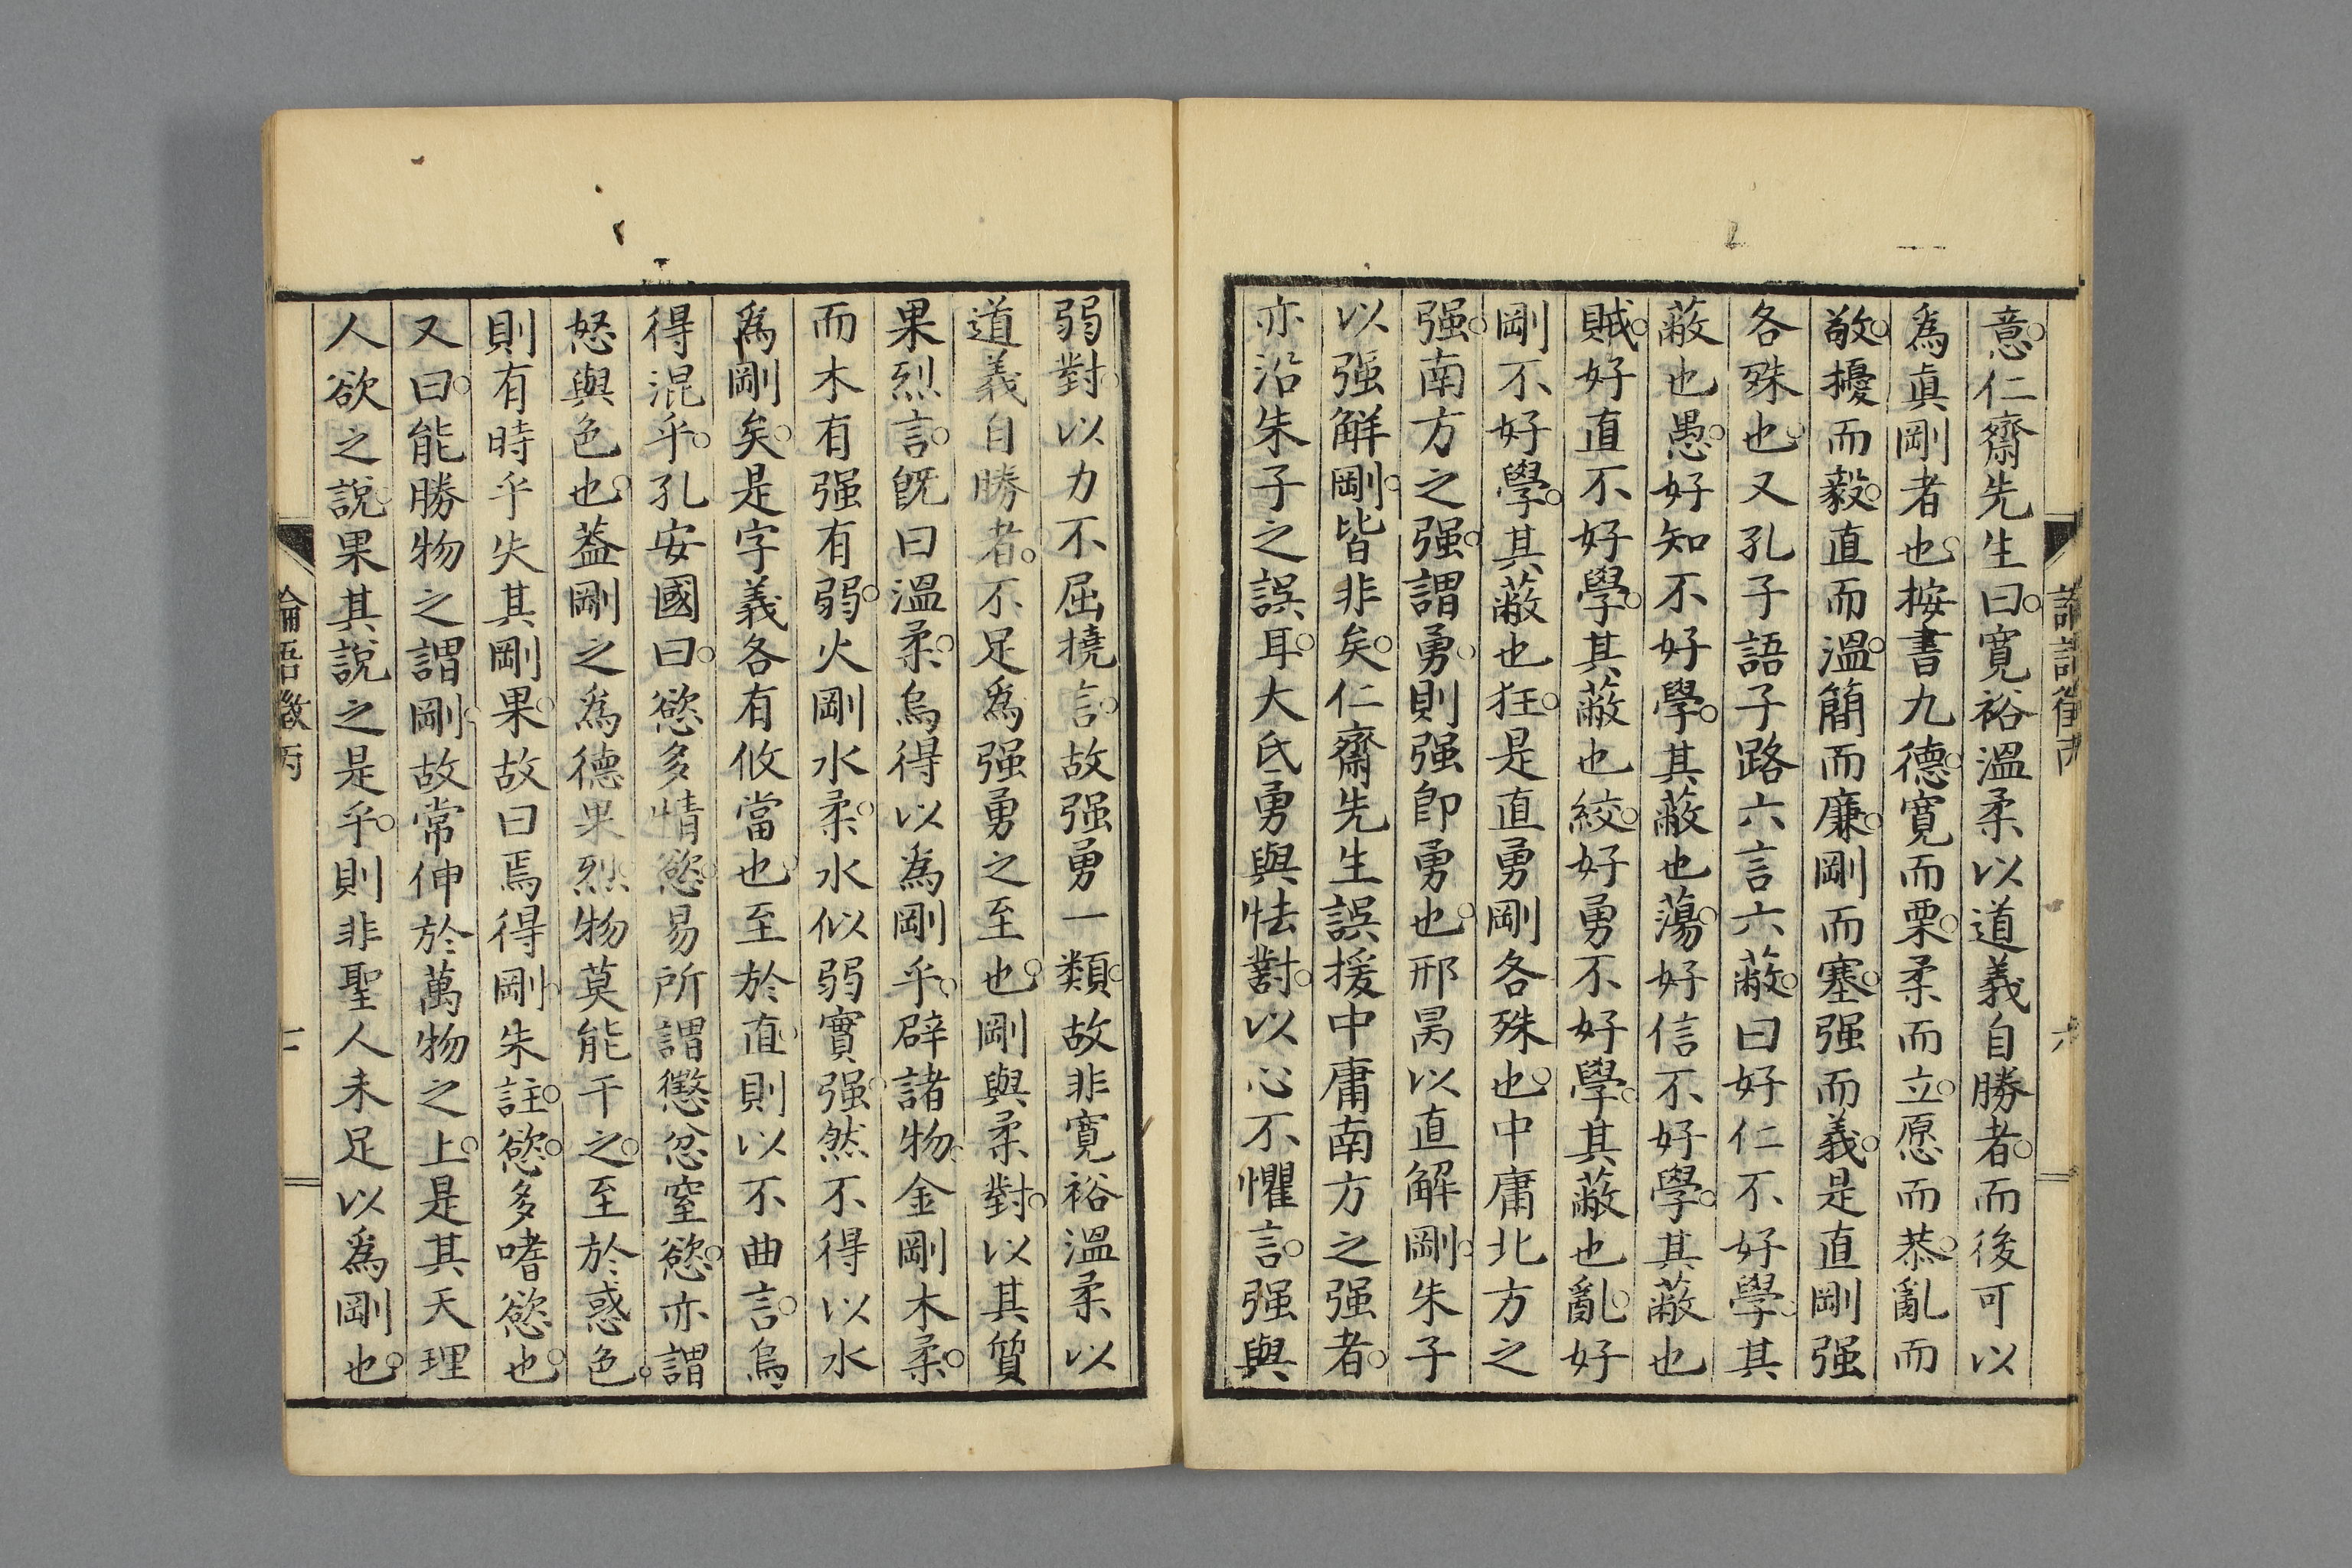 意。仁齋先生曰。寬裕溫柔以道義自勝者。而後可以
爲眞剛者也。按書九德。寬而栗。柔而立。愿而恭。亂而
敬。擾而毅。直而溫。簡而廉。剛而塞。强而義。是直剛强
各殊也。又孔子語子路六言六蔽。曰好仁不好學。其
蔽也愚。好知不好學。其蔽也蕩。好信不好學。其蔽也
賊。好直不好學。其蔽也絞。好勇不好學。其蔽也亂。好
剛不好學。其蔽也狂。是直勇剛各殊也。中庸北方之
强。南方之强。謂勇。則强卽勇也。邢昺以直解剛。朱子
以强解剛。皆非矣。仁齋先生誤援中庸南方之强者。
亦沿朱子之誤耳。大氐勇與怯對。以心不懼言。强與
弱對。以力不屈撓言。故强勇一類。故非寬裕溫柔以
道義自勝者。不足爲强勇之至也。剛與柔對。以其質
果烈言。旣曰溫柔。烏得以爲剛乎。辟諸物。金剛木柔。
而木有强有弱。火剛水柔。水似弱實强。然不得以水
爲剛矣。是字義各有攸當也。至於直。則以不曲言。烏
得混乎。孔安國曰。慾多情慾。易所謂懲忿窒慾。亦謂
怒與色也。蓋剛之爲德果烈。物莫能干之。至於惑色。
則有時乎失其剛果。故曰焉得剛。朱註。慾。多嗜慾也。
又曰。能勝物之謂剛。故常伸於萬物之上。是其天理
人欲之說。果其說之是乎。則非聖人未足以爲剛也。
論語徵丙